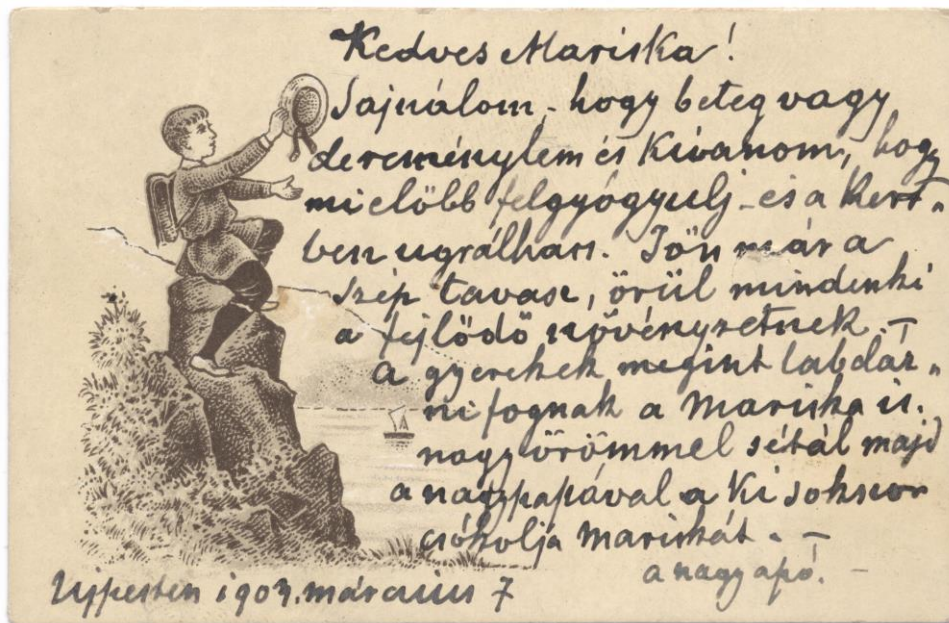 Kedves Mariska!
Sajnálom, hogy beteg vagy
de reménylem és kivanom, hogy
mielőbb felgyógyulj és a kert„
ben ugrálhass. Jön már a
szép tavasz, örül mindenki
a fejlődő növényzetnek. –
a gyerekek megint labdáz„
ni fognak a Mariska is.
nagy örömmel sétál majd
a nagypapával a ki sokszor
csókolja Mariskát. –
a nagyapó. –
Ujpesten március 7